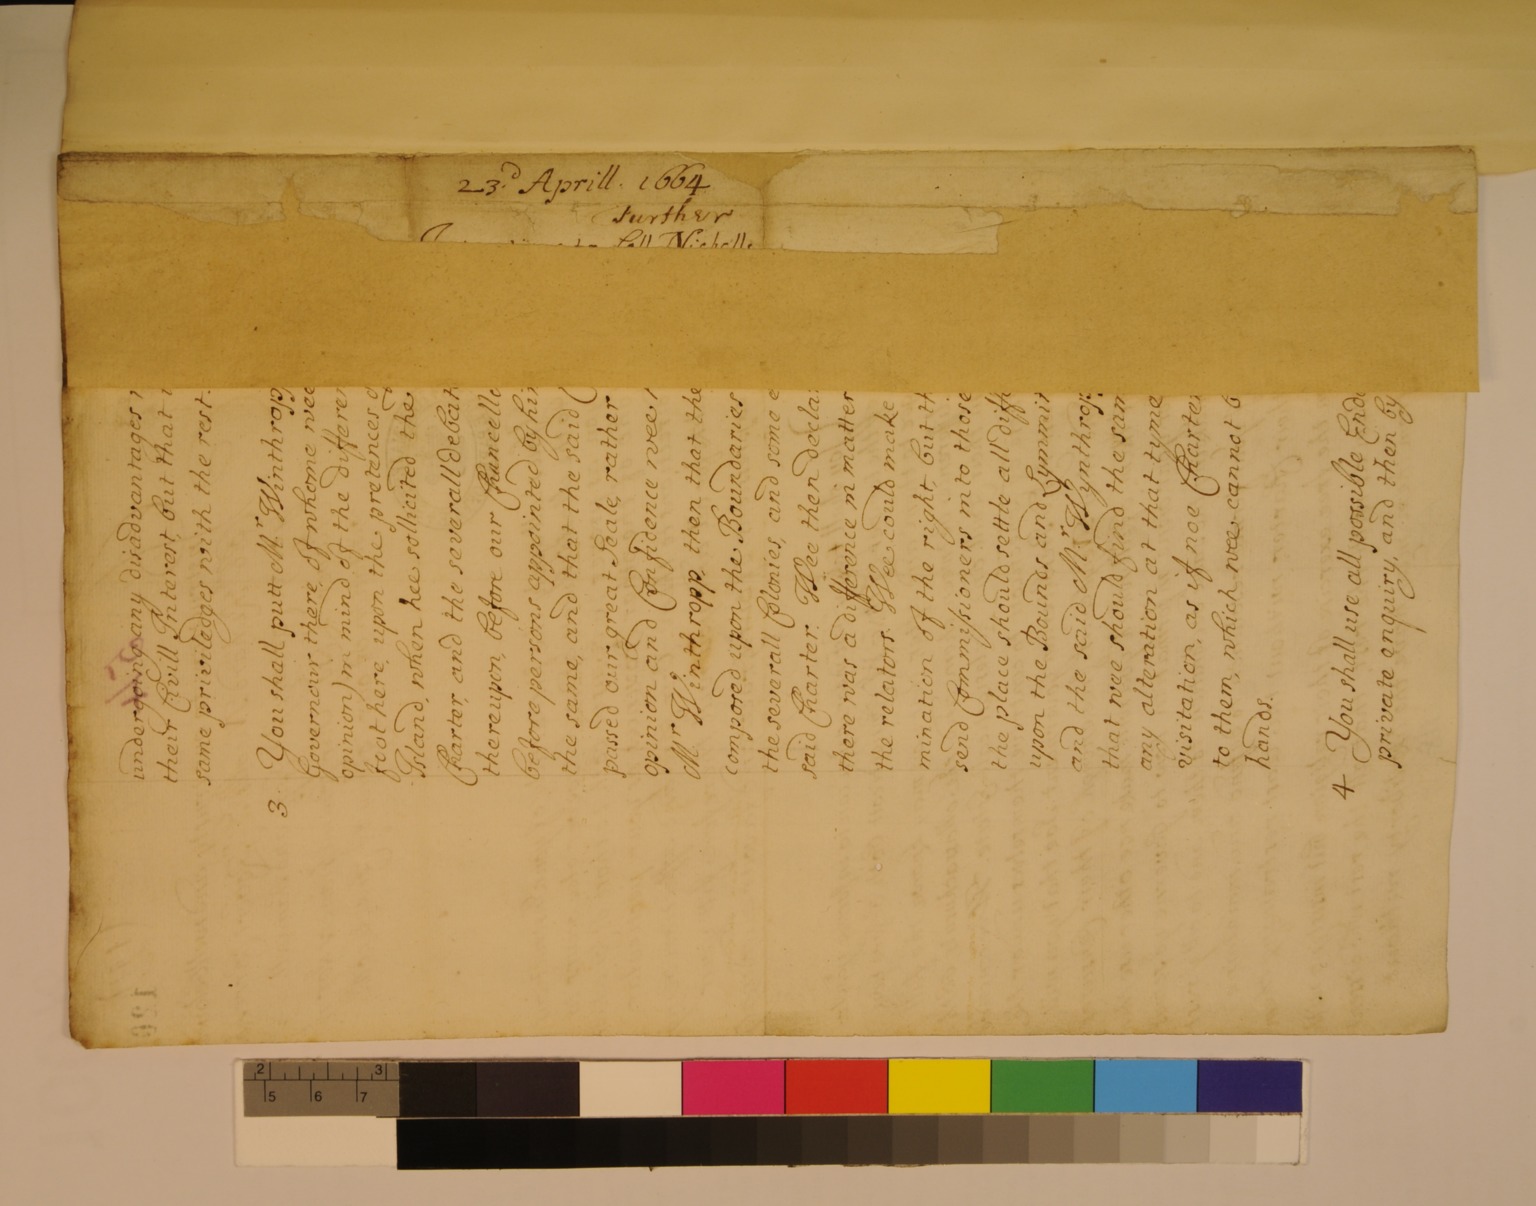 23.d Aprill. 1664
Further
to Coll Nicholls
undergoing any disadvantages
their Civill Interest, but that
same priviledges with the rest.
3. You shall putt Mr Winthropp
Governour there, of whome wee
opinion) in mind of the differen
feot here, upon the pretences
Island, when hee sollicited the
Charter, and the severall debat
thereupon, before our Chancello
before persons appointed by him
the same, and that the said
passed our great Seale, rather
opinion and Confidence wee
Mr. Winthropp, then that the
composed upon the Boundaries
the severall Colonies, and some
said Charter. Wee then decla
there was a difference in matter
the relators. Wee could make
mination of the right, but th
send Commissioners into those
the place should settle all diffe
upon the Bounds and Lymmit
and the said Mr. Wynthrop
that wee should find the sam
any alteration at that tyme
visitation, as if noe Charter
to them, which wee cannot b
hands.
4 You shall use all possible Ende
private enquiry, and then by
120
2 3
5 6 7